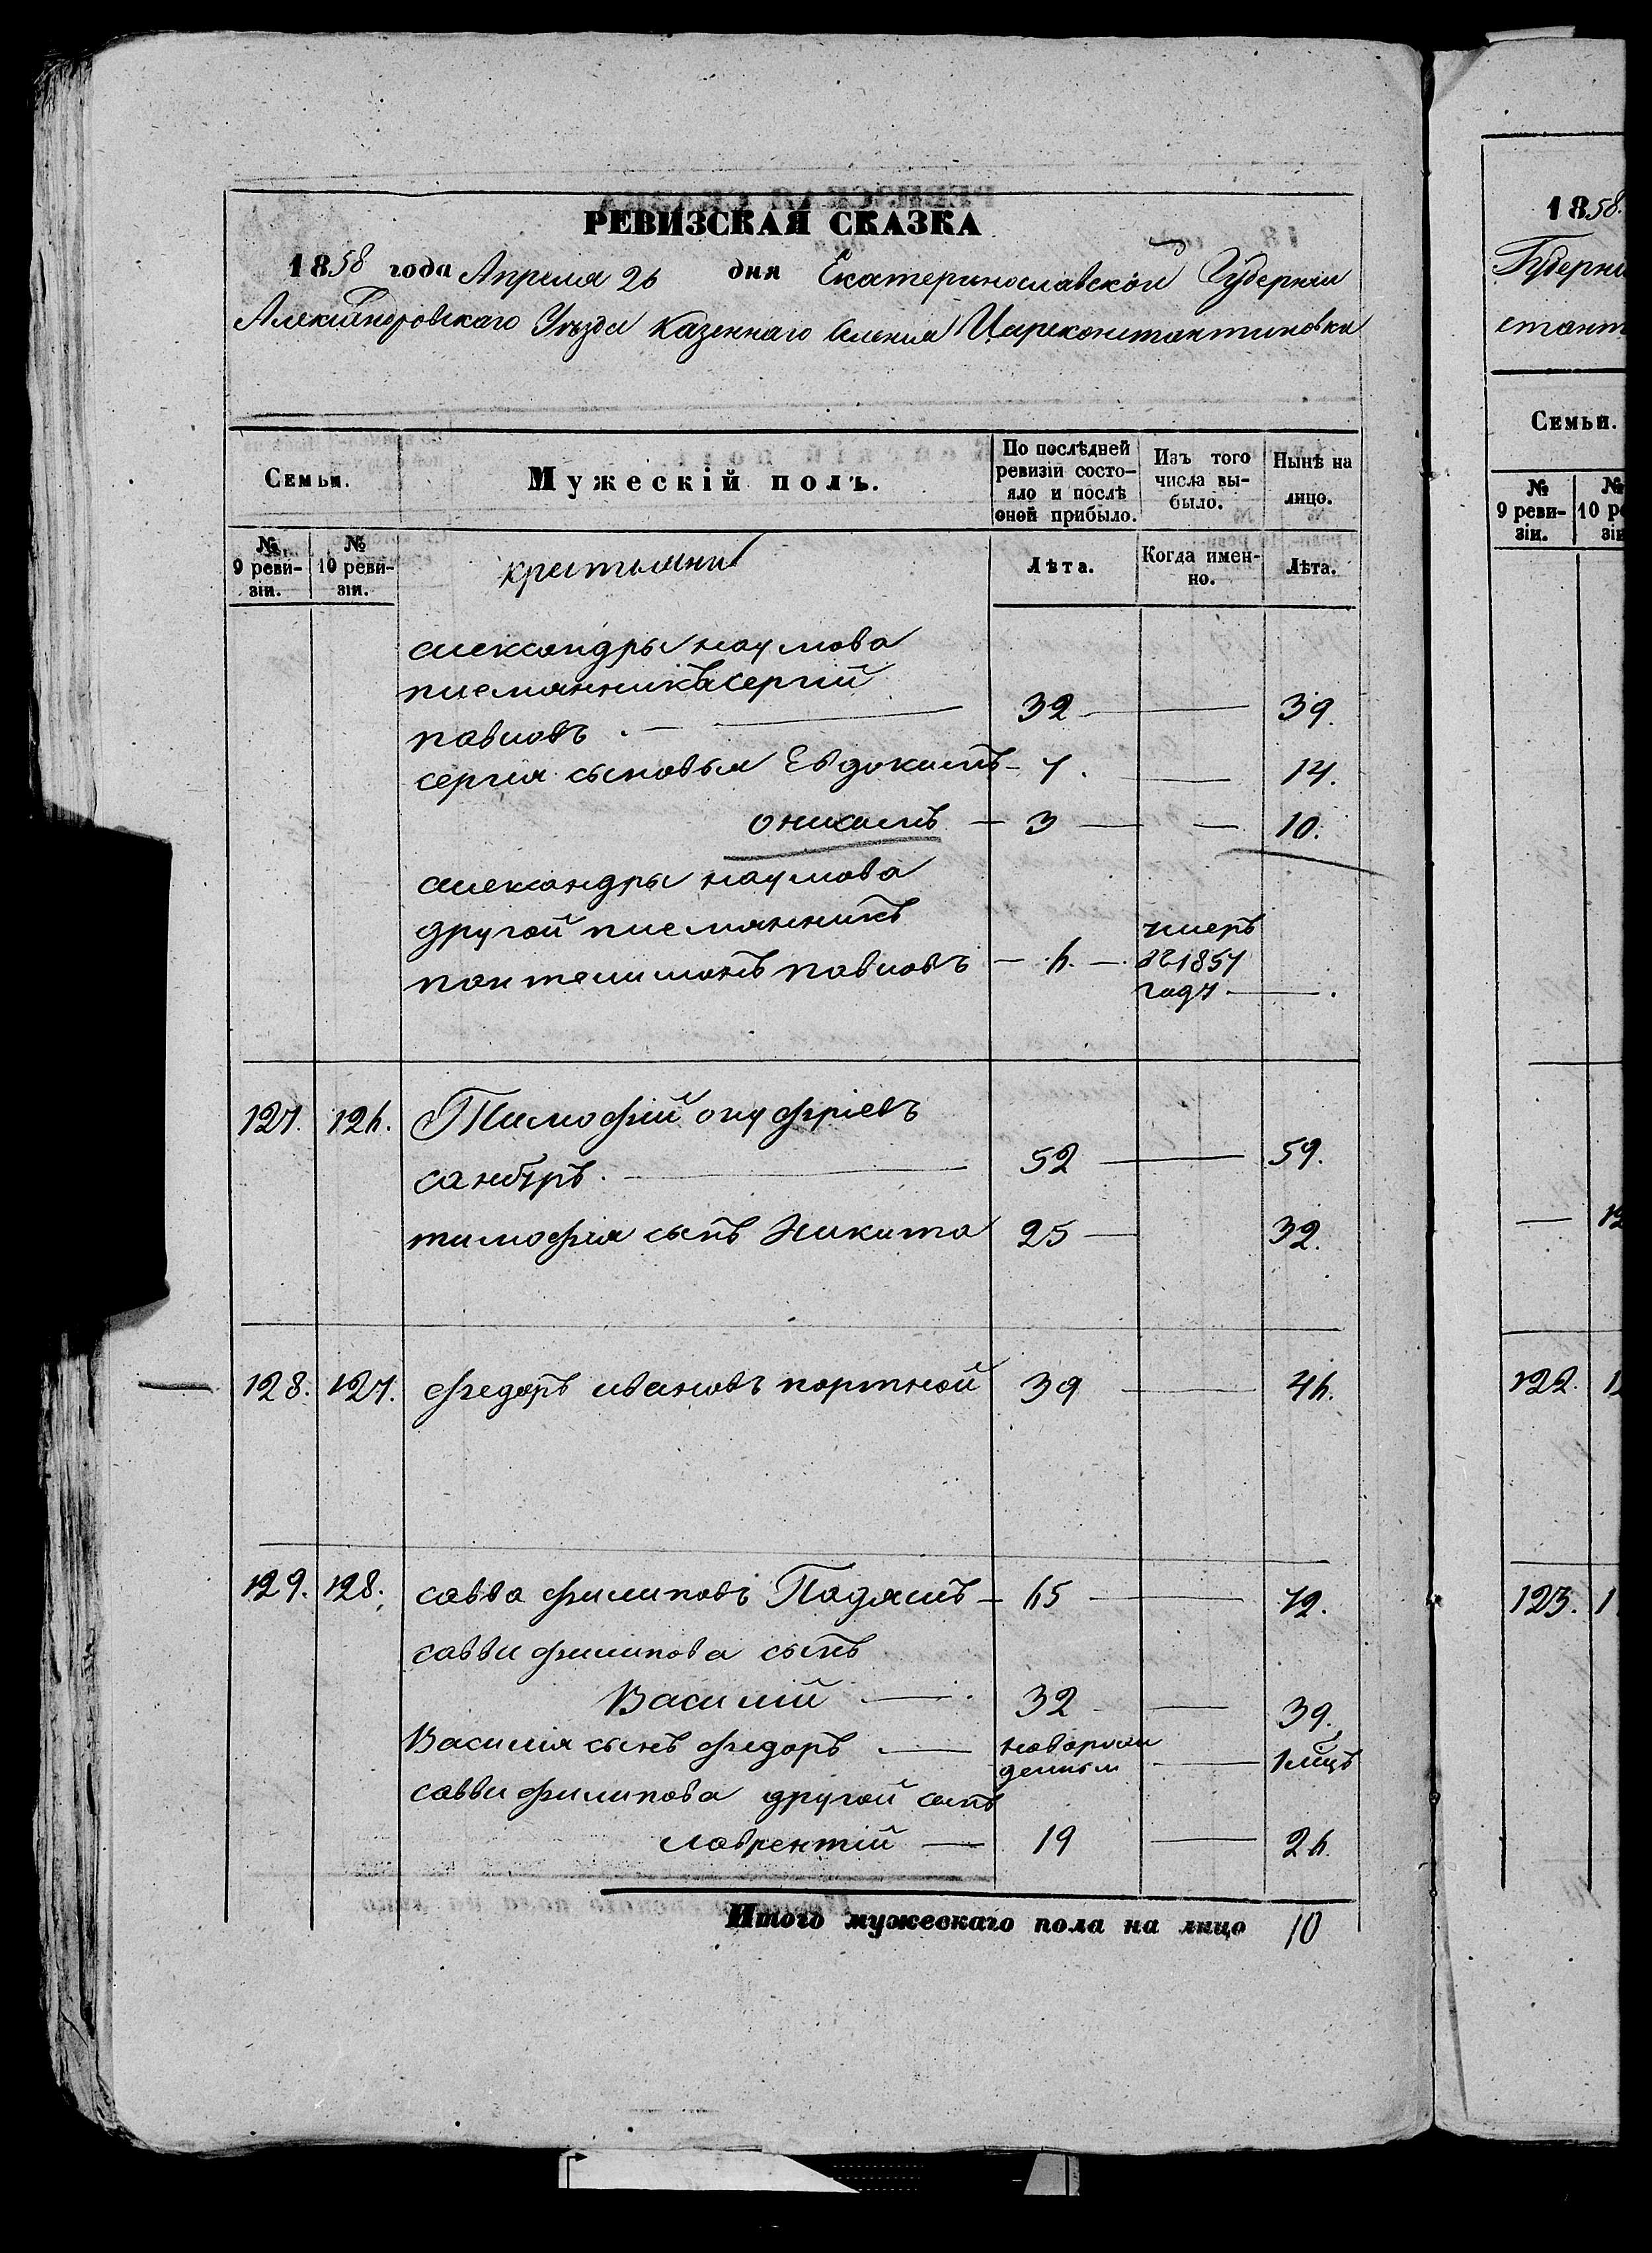 РЕВИЗСКАЯ СКАЗКА
1858 года Апреля 26 дня Екатеринославской Губерніи
Александровскаго Уѣзда Казеннаго Селенія Цареконстантиновки
Семьи.
Мужескій полъ.
По послѣдней ревизіи состо-яло и послѣ оной прибыло.
Изъ того числа вы-было.
Нынѣ на лицо.
№ 9 реви-зіи.
№ 10 реви-зіи.
крестьяни
Лѣта.
Когда имен-но.
Лѣта.
александры наумова
племянникъ сергій
павловъ . — 32 — 39.
сергия сыновья Евдокимъ - 7. — 14.
онисимъ — 3 — — 10.
александры наумова
другой племянникъ умеръ
пантелимонъ павловъ — 6. — въ 1857
году — .
127. 126. Тимофій онуфріевъ
52 — 59.
тимофия сынъ Никита 25 — 32.
128. 127. федоръ ивановъ портной 39 — 46.
129. 128. савва филиповъ — 65 — 72.
савви филипова сынъ
Василій — . 32 — 39.
Василія сынъ федоръ — новорожденный — 1 мцъ
савви филипова другой сынъ
лаврентій — 19 — 26.
Итого мужескаго пола на лицо 10
1858.
Губерни
стант
Семьи.
№ 9 реви-зіи.
№
10 ре
зіи
— 12
122. 12
123. 1